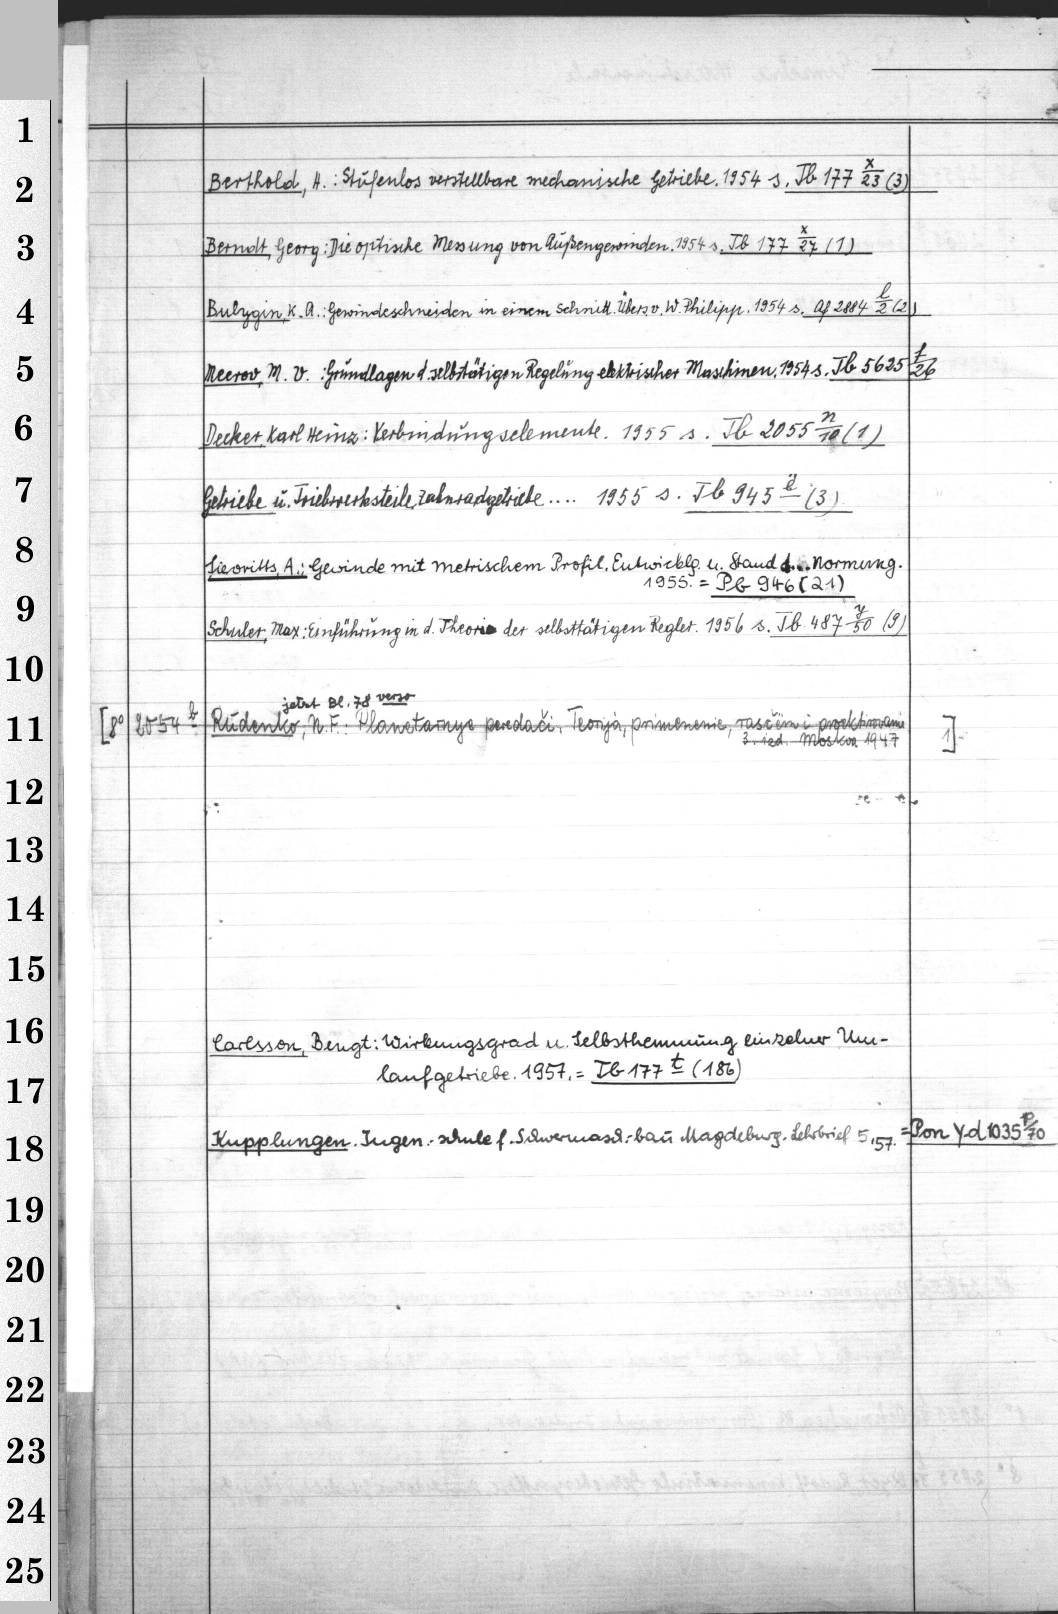 1
2
Berthold, H.: Stufenlos verstellbare mechanische Getriebe. 1954 s. Tb 177 x/23 (3)
3
Berndt, Georg: Die optische Messung von Außengewinden. 1954 s. Tb 177 x/27 (1)
4
Bulygin, K. A.: Gewindeschneiden in einem Schnitt. Übers. v. W. Philipp. 1954 s. Af 2884 l/2 (2)
5
Meerov, M. V.: Grundlagen d. selbsttätigen Regelung elektrischer Maschinen. 1954 s. Tb 5625 f/26
6
Decker, Karl Heinz: Verbindungselemente. 1955 s. Tb 2055 n/10 (1)
7
Getriebe u. Triebwerksteile, Zahnradgetriebe .... 1955 s. Tb 945 (3)
8
A.: Gewinde mit metrischem Profil. Entwicklg. u. Stand d... Normung.
1955. = Pb 946 (21)
9
Schuler, Max: Einführung in d. Theorie der selbsttätigen Regler. 1956 s. Tb 487 y/50 (9)
10
jetzt Bl. 78 verso
11
[8° 2054 Rudenko, N. F.: Planetarnye peredači. Teorija, primenenie, rasčëm i proektirovanie 1]
3. izd. Moskva 1947
12
13
14
15
16
Carlsson, Bengt: Wirkungsgrad u. Selbsthemmung einzelner Um-
17
laufgetriebe. 1957. = Tb 177 t (186)
18
Kupplungen. Ingen.-schule f. Schwermasch.-bau Magdeburg. Lehrbrief 5, 57. = Pon Yd 1035 p/70
19
20
21
22
23
24
25